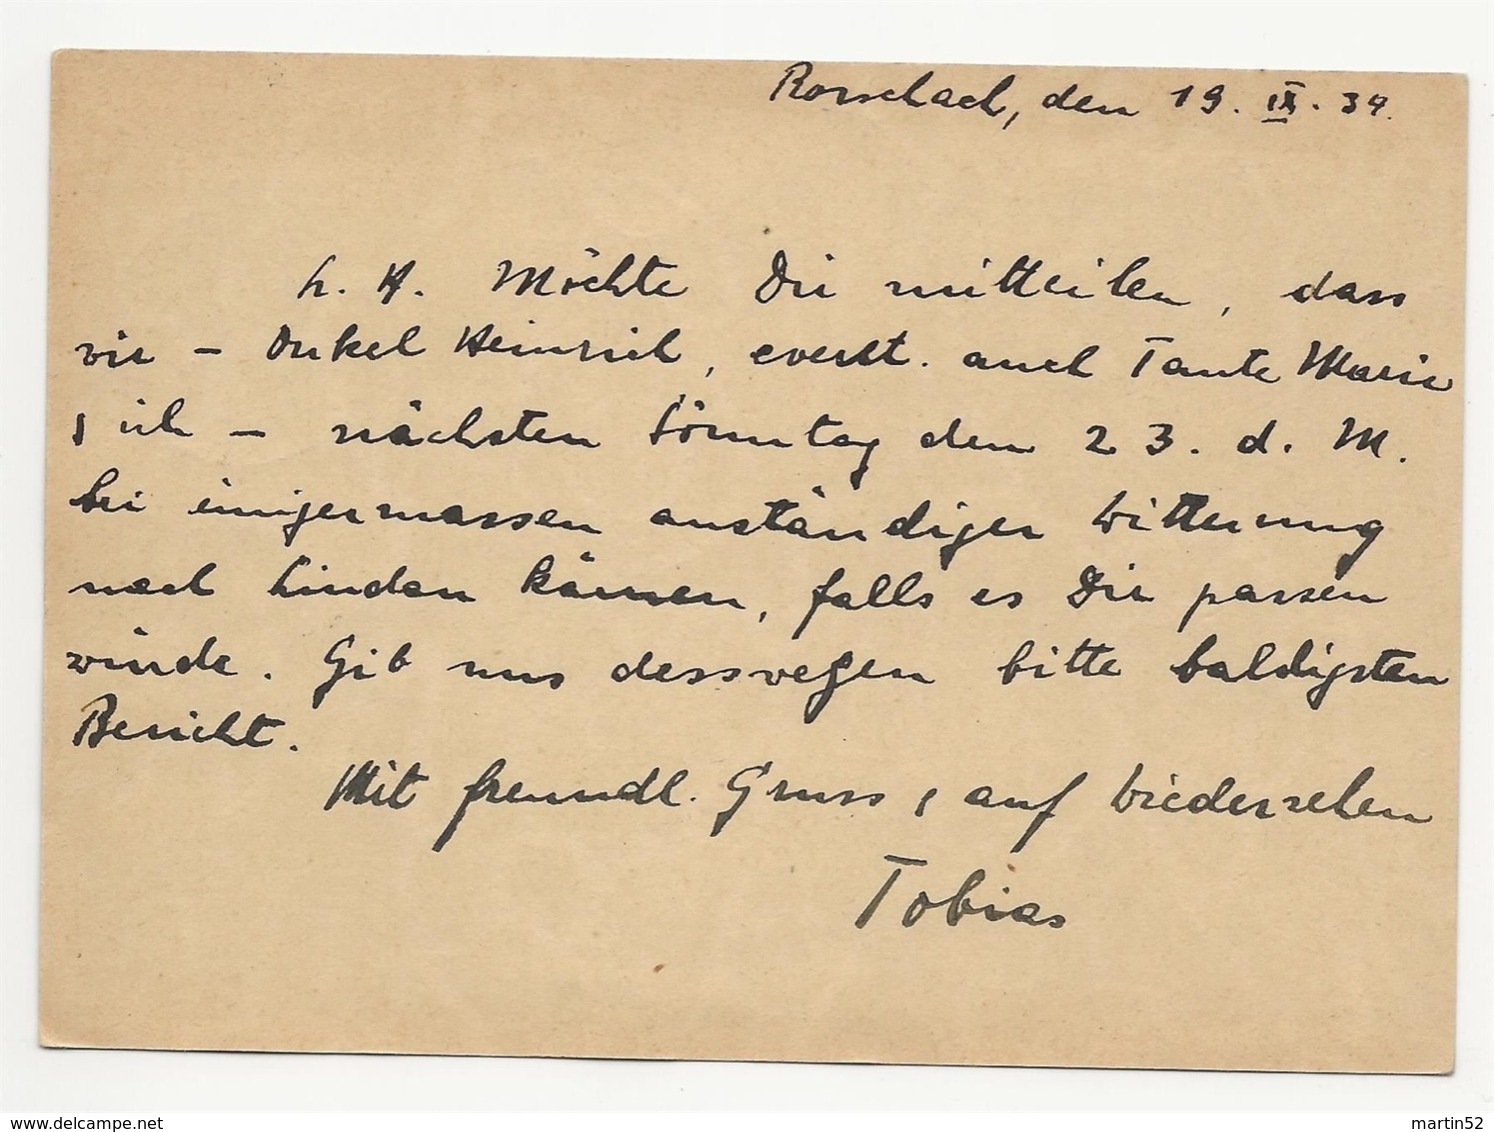 Rorschach, den 19. IX. 34.
L. H. Möchte Dir mitteilen, dass
wir – Onkel Heinrich, eventl. auch Tante Marie
& ich – nächsten Sonntag den 23. d. M.
bei einigermassen anständiger Witterung
nach Lindau kämen, falls es Dir passen
würde. Gib uns desswegen bitte baldigsten
Bericht.
Mit freundl. Gruss & auf Wiedersehen
Tobias
martin52